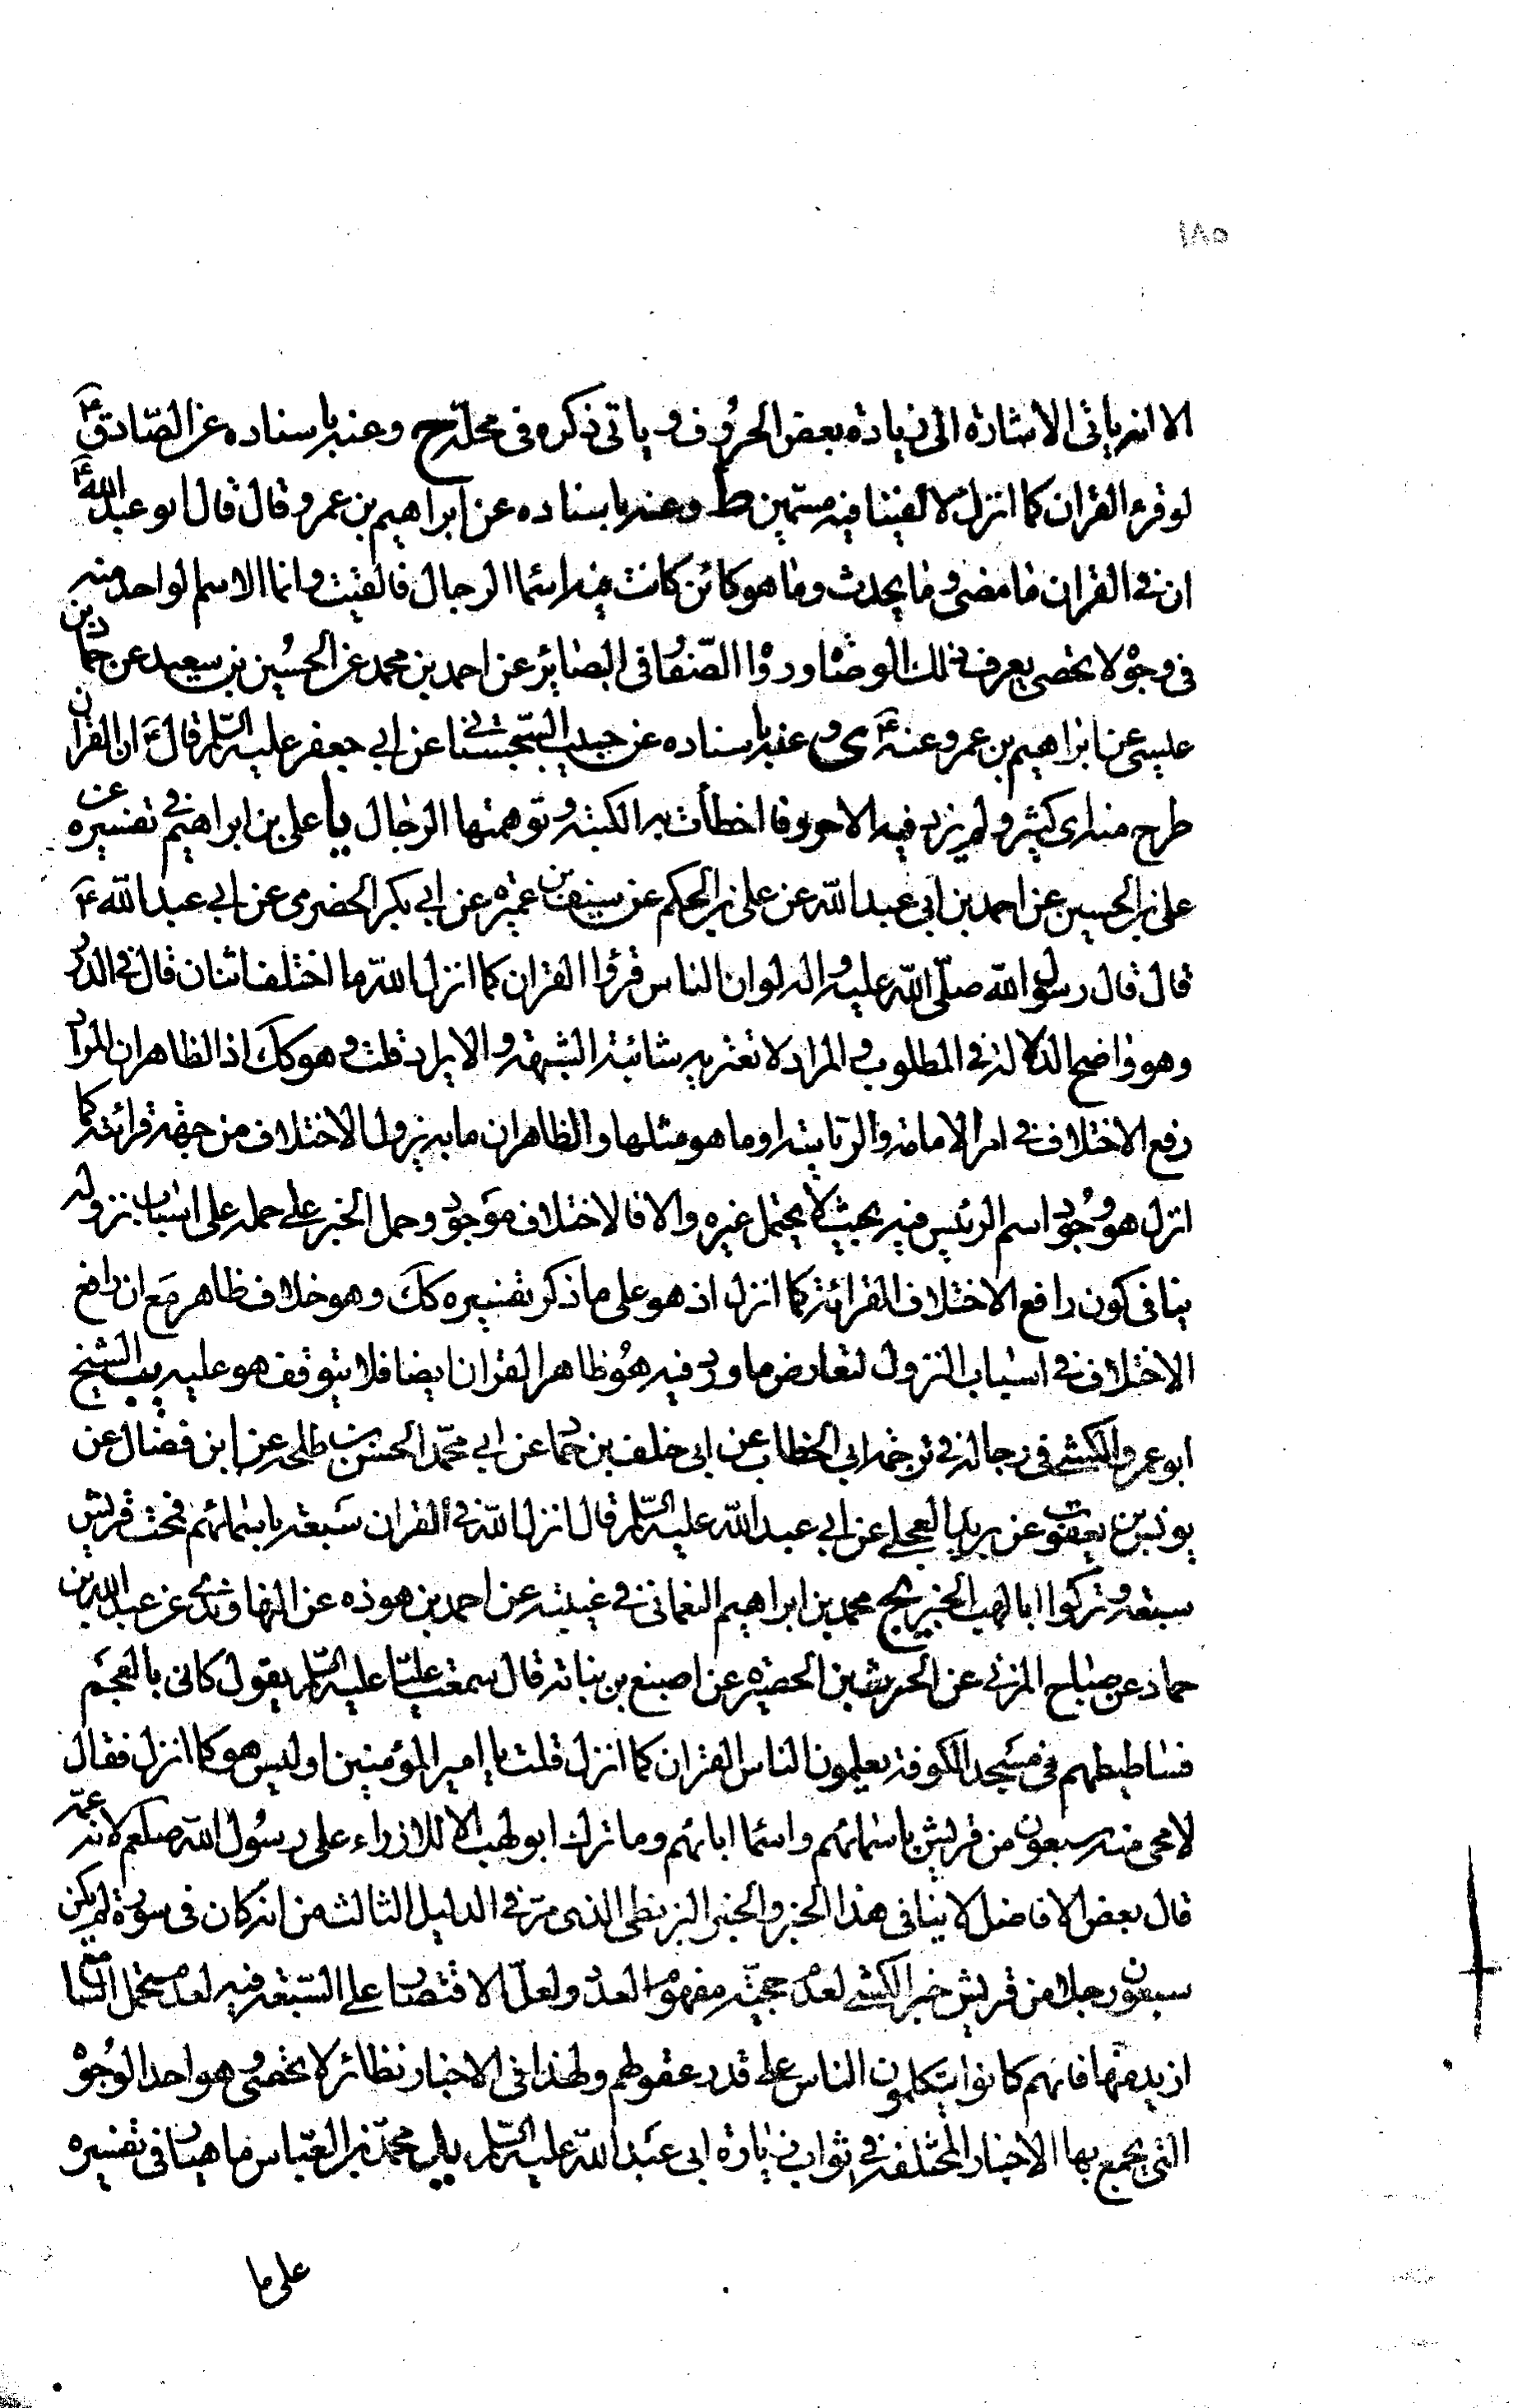 ١٨٥
الا انه ياتى الاشارة الى زيادة بعض الحروف و ياتى ذكره فى محله ح وعنه باسناده عن الصّادق ع
لو قرء القران كما انزل لالفيتنا فيه مسمّين ط وعنه باسناده عن ابراهيم بن عمرو قال قال ابو عبد الله ع
ان فى القران ما مضى وما يحدث وما هو كائن كانت فيه اسما الرجال فالقيت وانما الاسم الواحد منه
فى وجوه لا تحصى يعرف ذلك الوصاة ورواه الصّفار فى البصائر عن احمد بن محمد عن الحسين بن سعيد عن حماد بن
عيسى عن ابراهيم بن عمرو عنه ع ى وعنه باسناده عن حبيب السّجستانى عن ابى جعفر عليه السّلم قال ع ان القران
طرح منه اى كثير ولم يزد فيه الا حروف اخطأت به الكتبه و توهمتها الرجال يا على بن ابراهيم فى تفسيره عن
على بن الحسين عن احمد بن ابى عبد الله عن على بن الحكم عن سيف بن عميره عن ابى بكر الحضرمى عن ابى عبد الله ع
قال قال رسول الله صلّى الله عليه واله لو ان الناس قرؤا القران كما انزل الله ما اختلف اثنان قال فى الدرر
وهو واضح الدلالة فى المطلوب و المراد لا تعتريه شائبة الشبهة و الايراد قلت و هو كك اذ الظاهر ان المراد
رفع الاختلاف فى امر الامامة والرياسة او ما هو مثلها و الظاهر ان ما به يزول الاختلاف من جهة قرائته كما
انزل هو وجود اسم الرئيس فيه بحيث لا يحتمل غيره والا فالاختلاف موجود وحمل الخبر على حمله على اسباب نزوله
ينافى كون رافع الاختلاف القرائة كما انزل اذ هو على ما ذكر تفسيره كك وهو خلاف ظاهر مع ان رافع
الاختلاف فى اسباب النزول لتعارض ما ورد فيه هو ظاهر القران ايضا فلا يتوقف هو عليه يب الشيخ
ابو عمرو الكشى فى رجاله فى ترجمه ابى الخطاب عن ابى خلف بن حماد عن ابى محمّد الحسن بن طلحه عن ابن فضال عن
يونس بن يعقوب عن بريد العجلى عن ابى عبد الله عليه السّلم قال انزل الله فى القران سبعة باسمائهم فمحت قريش
سبتة وتركوا ابا لهب الخبر يج محمد بن ابراهيم النعمانى فى غيبته عن احمد بن هوذه عن النهاوندى عن عبد الله بن
حماد عن صباح المزنى عن الحرث بن الحصيره عن اصبغ بن نباته قال سمعت عليّا عليه السّلم يقول كانى بالعجم
فساطيطهم فى مسجد الكوفة يعلمون الناس القران كما انزل قلت يا امير المؤمنين اوليس هو كما انزل فقال
لا محى منه سبعون من قريش باسمائهم واسما ابائهم وما ترك ابو لهب الا للازراء على رسول الله صلعم لانه عمّه
قال بعض الافاضل لا ينافى هذا الخبر والخبر البزنطى الذى مرّ فى الدليل الثالث من انه كان فى سورة لم يكن
سبعون رجلا من قريش خبر الكشى لعدم حجيّة مفهوم العدد ولعل الاقتصار على السّبعة فيه لعدم تحمل السّامع
ازيد منها فانهم كانوا يتكلمون الناس على قدر عقولهم ولهذا فى الاخبار نظائر لا تحصى و هو احد الوجوه
التى يجمع بها الاخبار المختلفة فى ثواب زيارة ابى عبد الله عليه السّلم يد محمّد بن العبّاس ماهيار فى تفسيره
على ما